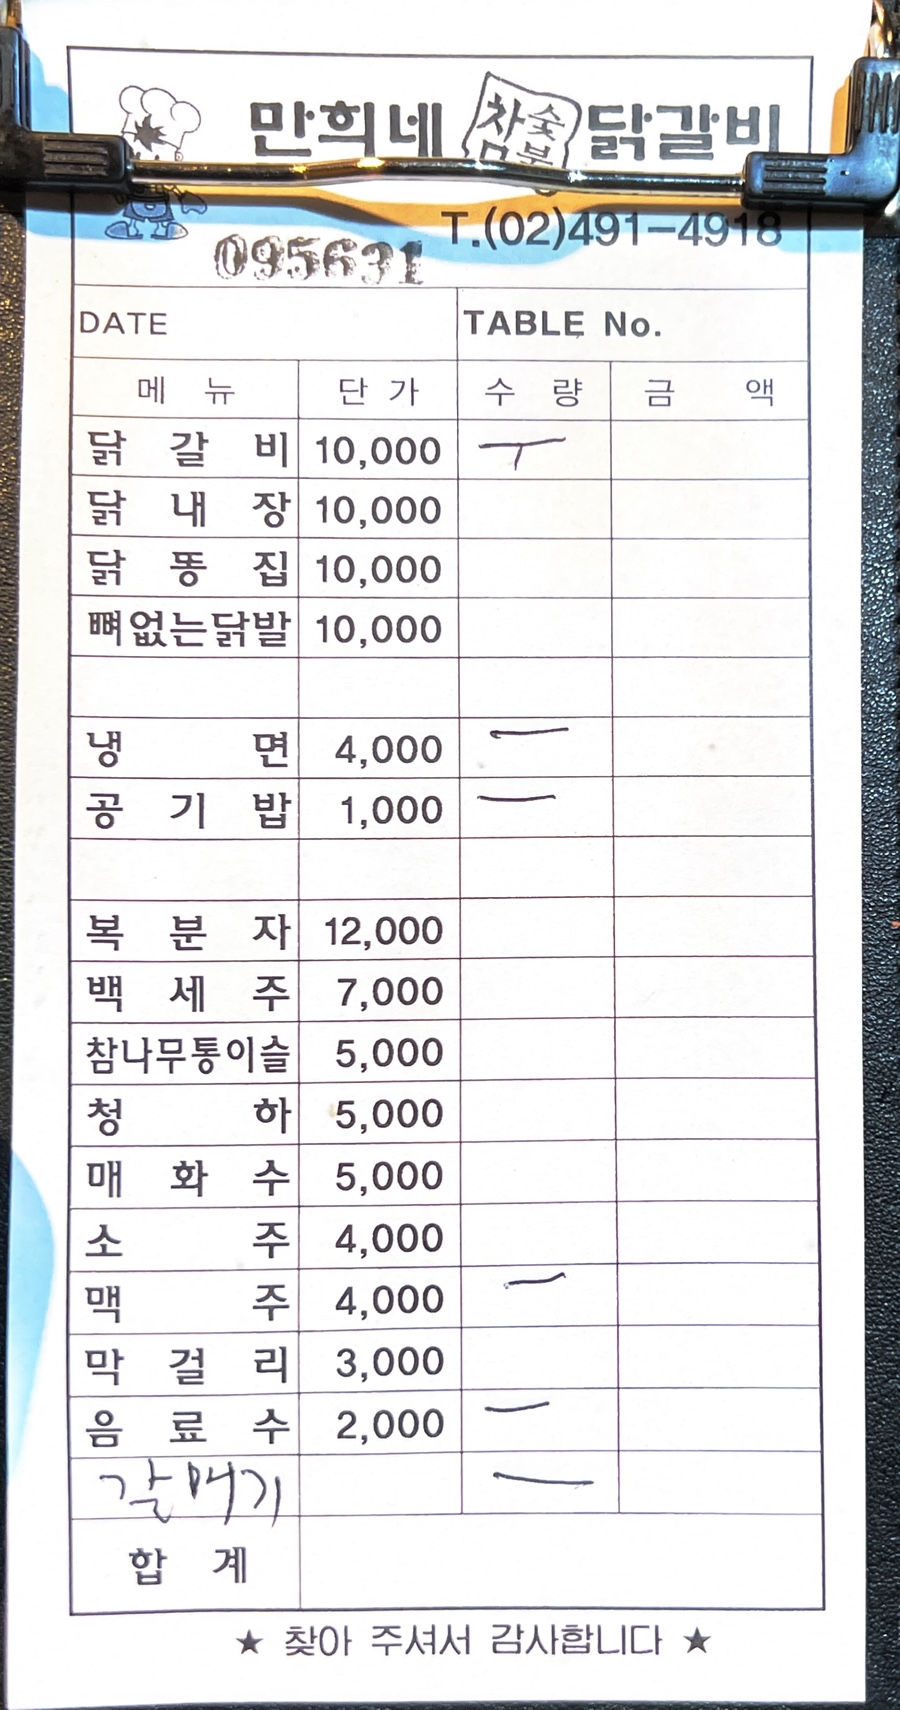 만희네 참숯불 닭갈비
T.(02)491-4918
095631
DATE TABLE No.
메 뉴 단 가 수 량 금 액
닭 갈 비 10,000 ㅜ
닭 내 장 10,000
닭 똥 집 10,000
뼈없는닭발 10,000
냉 면 4,000 ㅡ
공 기 밥 1,000 ㅡ
복 분 자 12,000
백 세 주 7,000
참나무통이슬 5,000
청 하 5,000
매 화 수 5,000
소 주 4,000
맥 주 4,000 ㅡ
막 걸 리 3,000
음 료 수 2,000 ㅡ
갈매기 ㅡ
합 계
★ 찾아 주셔서 감사합니다 ★